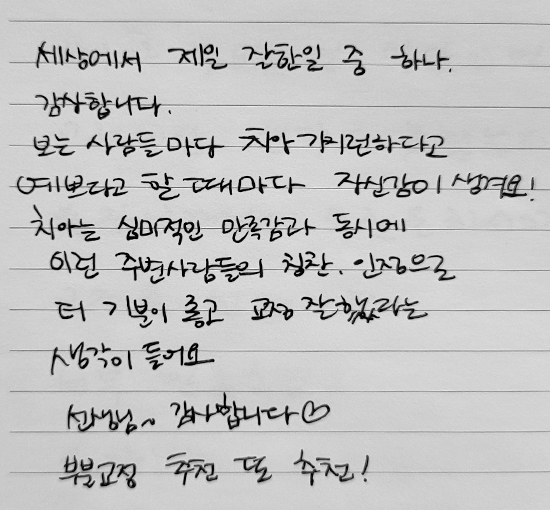 세상에서 제일 잘한일 중 하나.
감상합니다.
보는 사람들마다 치아 가지런하다고
예쁘다고 할 때마다 자신감이 생겨요!
치아는 심미적인 만족감과 동시에
이런 주변사람들의 칭찬. 인정으로
더 기분이 좋고 교정 잘했다라는
생각이 들어요
선생님~ 감사합니다♡
부분교정 추천 또 추천!